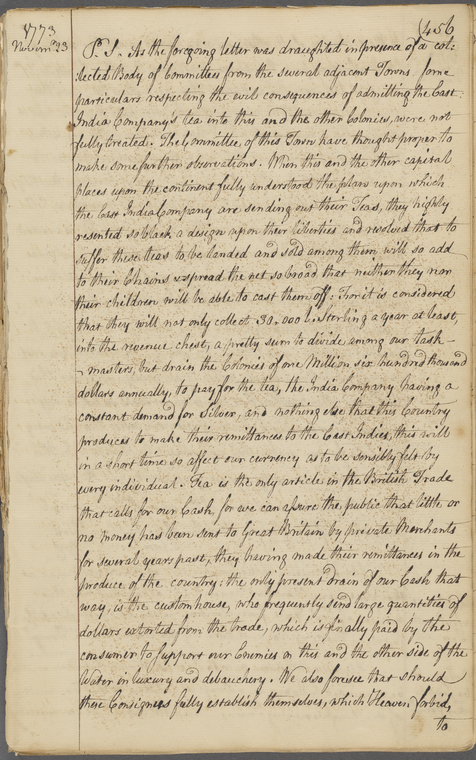 1773
Novemr. 23
(456
P.S. As the foregoing letter was draughted in presence of a col:
lected Body of Committees from the several adjacent Towns some
particulars respecting the evil consequences of admitting the East
India Company's tea into this and the other Colonies, were not
fully treated. The Committee, of this Town have thought proper to
make some further observations. When this and the other capital
places upon the continent fully understood the plan upon which
the East India Company are sending out their Teas, they highly
resented so black a design upon their liberties and resolved that to
suffer these teas to be landed and sold among them will so add
to their Chains & spread the net so broad that neither they nor
their children will be able to cast them off: For it is considered
that they will not only collect 30.000 l. Sterling a year at least,
into the revenue chest, a pretty sum to divide among our task-
masters, but drain the Colonies of one Million six hundred thousand
dollars annually, to pay for the tea, the India Company having a
constant demand for Silver, and nothing else that this Country
produces to make their remittances to the East Indies, this will
in a short time so affect our currency as to be sensibly felt by
every individual. Tea is the only article in the British Trade
that calls for our Cash, for we can assure the public that little or
no money has been sent to Great Britain by private Merchants
for several years past, they having made their remittances in the
produce of the country: the only present drain of our Cash that
way, is the customhouse, who frequently send large quantities of
dollars extorted from the trade, which is finally paid by the
consumer to support our Enemies on this and the other side of the
Water in luxury and debauchery. We also foresee that should
these Consignees fully establish themselves, which Heaven forbid,
to